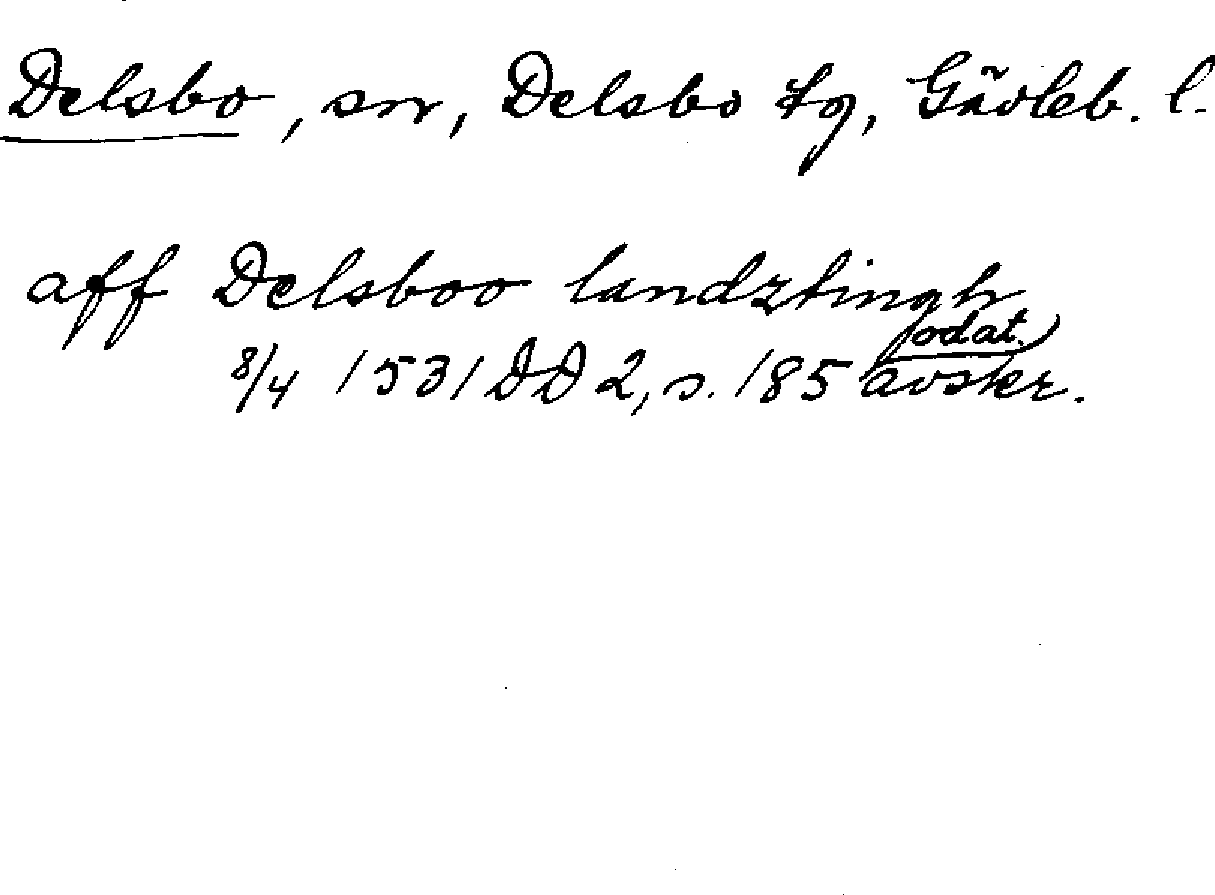 Delsbo, sn, Delsbo tg, Gävleb. l.
aff Delsboo landztingh
8/4 1531 DD 2, s. 185 odat. avskr.